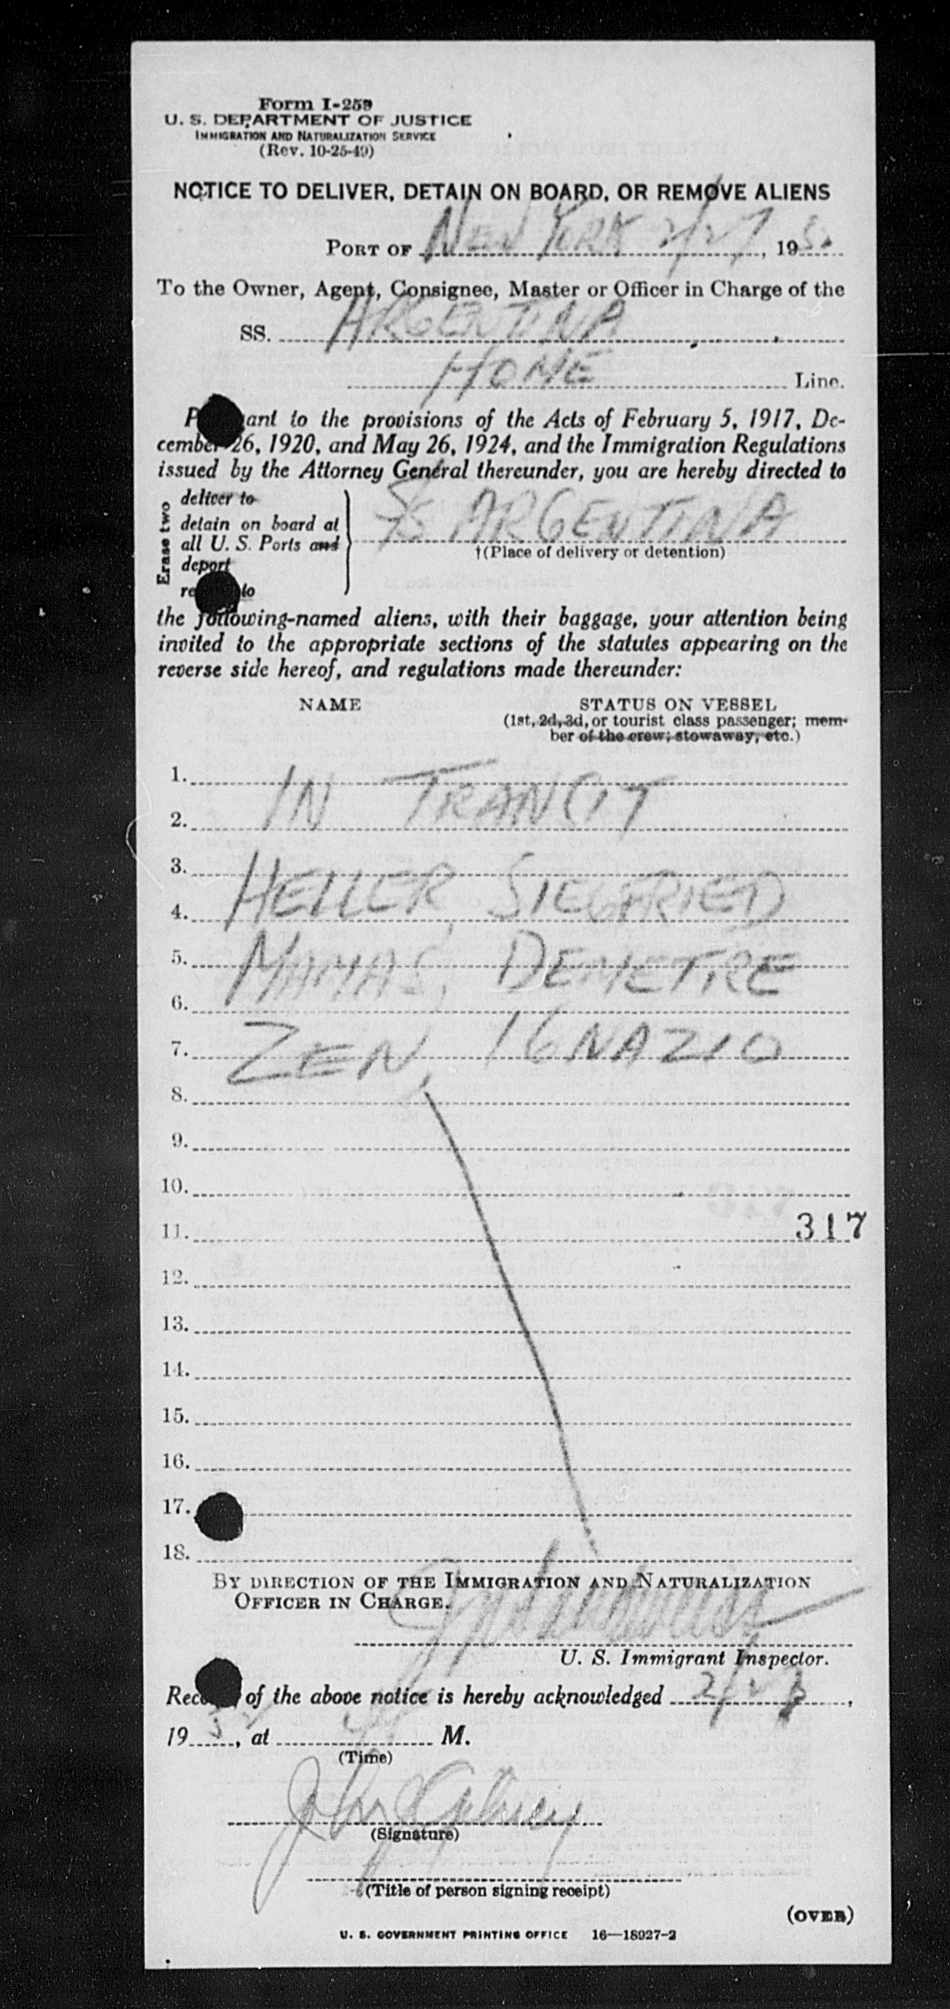 Form I-259
U. S. DEPARTMENT OF JUSTICE
IMMIGRATION AND NATURALIZATION SERVICE
(Rev. 10-25-49)
NOTICE TO DELIVER, DETAIN ON BOARD, OR REMOVE ALIENS
PORT OF NEW YORK 2/27, 195
To the Owner, Agent, Consignee, Master or Officer in Charge of the
SS. ARGENTINA
HOME Line.
to the provisions of the Acts of February 5, 1917, De-
cember 26, 1920, and May 26, 1924, and the Immigration Regulations
issued by the Attorney General thereunder, you are hereby directed to
Erase two
deliver to
detain on board at
all U. S. Ports and
deport
to
S/S ARGENTINA
†(Place of delivery or detention)
the following-named aliens, with their baggage, your attention being
invited to the appropriate sections of the statutes appearing on the
reverse side hereof, and regulations made thereunder:
NAME STATUS ON VESSEL
(1st, 2d, 3d, or tourist class passenger; mem-
ber of the crew; stowaway, etc.)
1.
IN TRANCIT
2.
3.
HELLER, SIEGFRIED
4.
5.
MAMAS, DEMETRE
6.
7.
ZEN, IGNAZIO
8.
9.
10.
11. 317
12.
13.
14.
15.
16.
17.
18.
BY DIRECTION OF THE IMMIGRATION AND NATURALIZATION
OFFICER IN CHARGE.
U. S. Immigrant Inspector.
of the above notice is hereby acknowledged 2/27,
195, at M.
(Time)
(Signature)
(Title of person signing receipt)
(OVER)
U. S. GOVERNMENT PRINTING OFFICE 16—18927-2